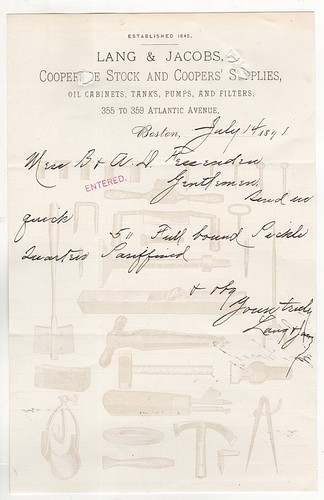 ESTABLISHED 1845.
LANG & JACOBS,
COOPERAGE STOCK AND COOPERS' SUPPLIES,
OIL CABINETS, TANKS, PUMPS, AND FILTERS,
355 TO 359 ATLANTIC AVENUE,
Boston, July 14 1891
Mess B & A. D. Fessenden
ENTERED.
Gentlemen,
Send us
quick
50 Full bound Pickle
Quarters Paraffined
& obg
Yours truly
Lang & Jacobs